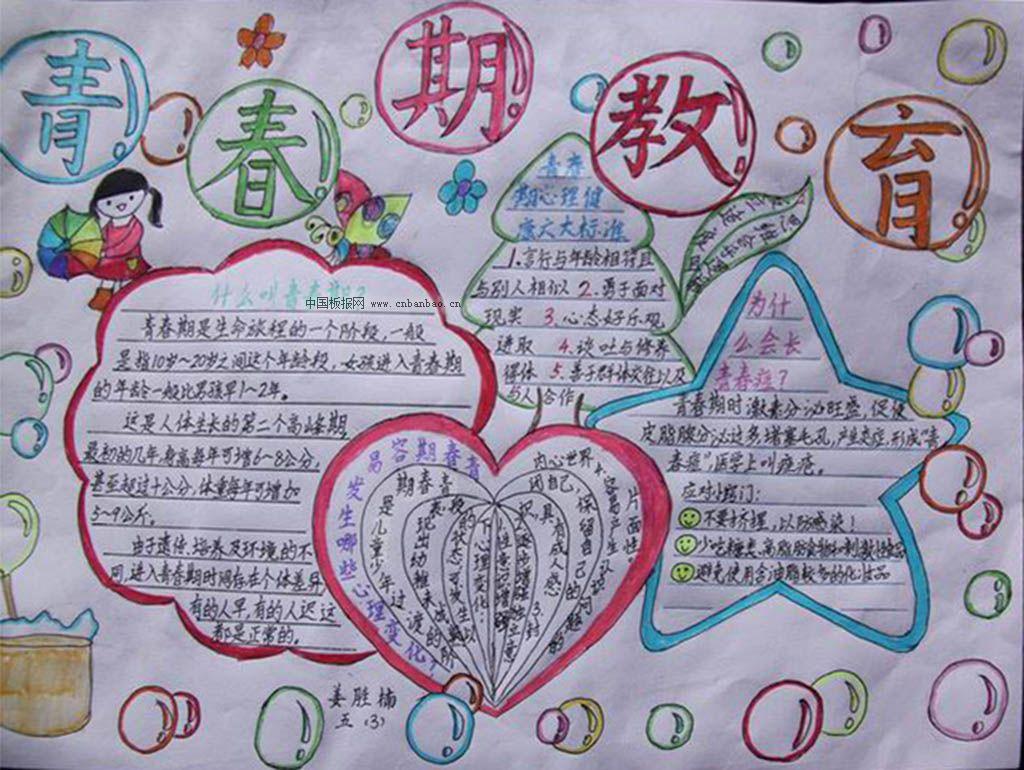 青春期教育
什么叫青春期?
中国板报网 www.cnbanbao.cn
青春期是生命旅程的一个阶段,一般
是指10岁~20岁之间这个年龄段,女孩进入青春期
的年龄一般比男孩早1~2年。
这是人体生长的第二个高峰期,
最初的几年,身高每年可增6~8公分,
甚至超过十公分,体重每年可增加
5~9公斤。
由于遗传、培养及环境的不
同,进入青春期时间存在个体差异,
有的人早,有的人迟,这
都是正常的。
青春
期心理健
康六大标准
1.言行与年龄相符且
与别人相似 2.勇于面对
现实 3.心态好乐观
进取 4.谈吐与修养
得体 5.善于群体交往以及
与人合作
为什
么会长
青春痘?
青春期时激素分泌旺盛,促使
皮脂腺分泌过多堵塞毛孔,产生炎症,形成“青
春痘”,医学上叫痤疮。
应对小窍门:
不要挤捏,以防感染!
少吃糖类、高脂肪食物和刺激性食品
避免使用含油脂较多的化妆品
青春期容易
发生哪些心理变化?
青春期
是儿童少年过渡
内心世界
闭自己,
保留自己的
片面性
具有成人感
姜胜楠
五(3)